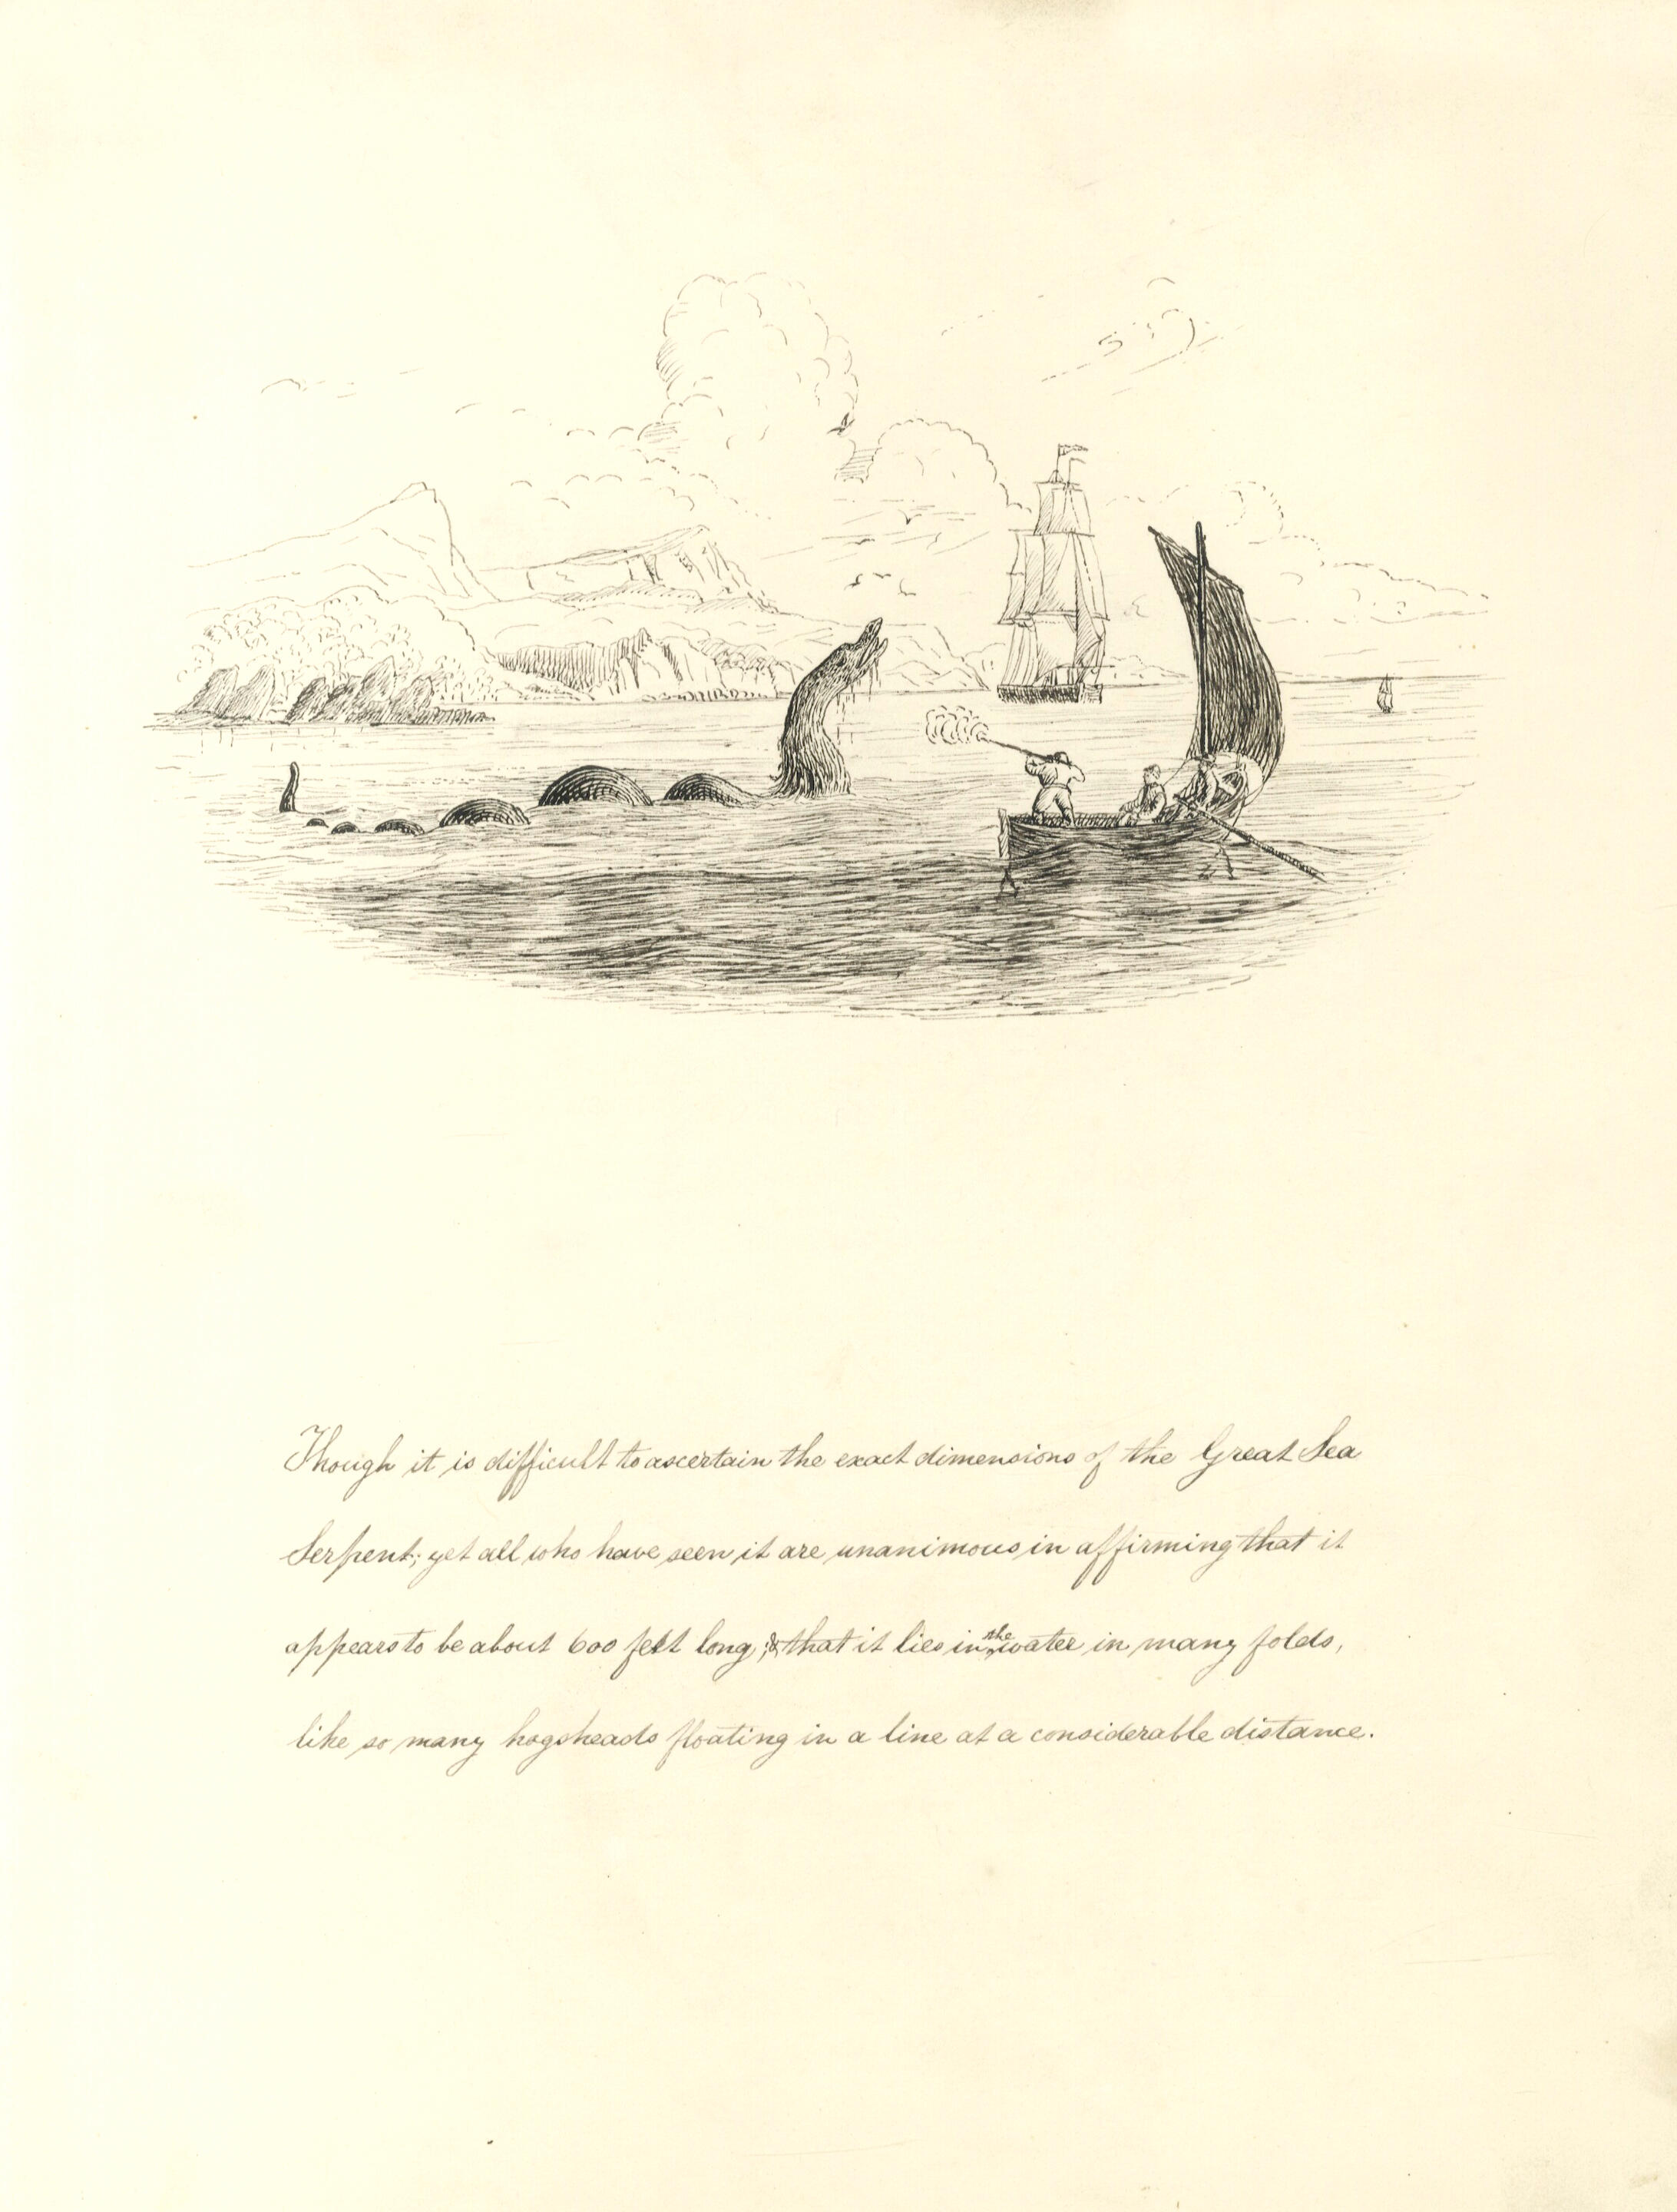 Though it is difficult to ascertain the exact dimensions of the Great Sea
Serpent; yet all who have seen it are unanimous in affirming that it
appears to be about 600 feet long; & that it lies in the water in many folds,
like so many hogsheads floating in a line at a considerable distance.